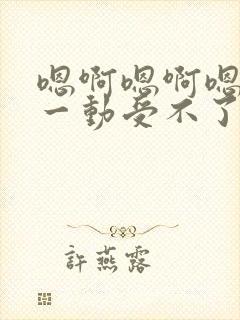 嗯啊嗯啊嗯
一動受不了
許燕露